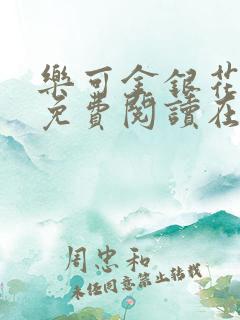 樂可金銀花
免費閱讀在
周忠和
未经同意禁止转载